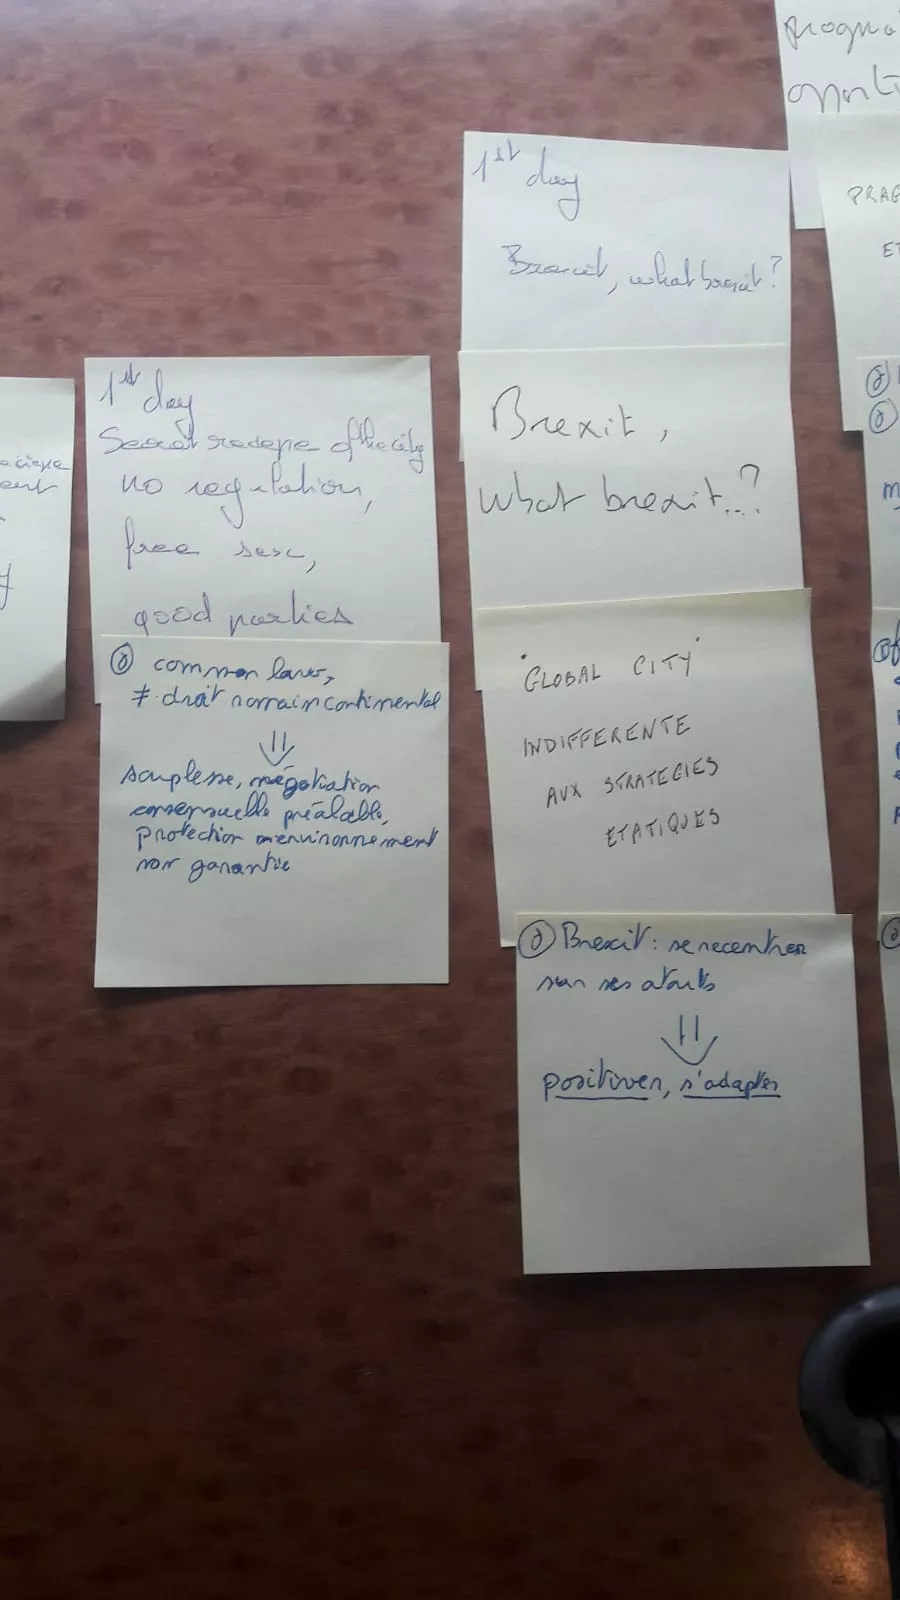 1st day
Secret recepe of the city
no regulation,
free sex,
good parties
∂ common law,
≠ droit romain continental
⇓
souplesse, négociation
consensuelle préalable,
protection environnement
non garantie
1st day
Brexit, what brexit?
Brexit,
what brexit..?
"GLOBAL CITY"
INDIFFERENTE
AUX STRATEGIES
ETATIQUES
∂ Brexit : se recentrer
sur ses atouts
⇓
positiver, s'adapter